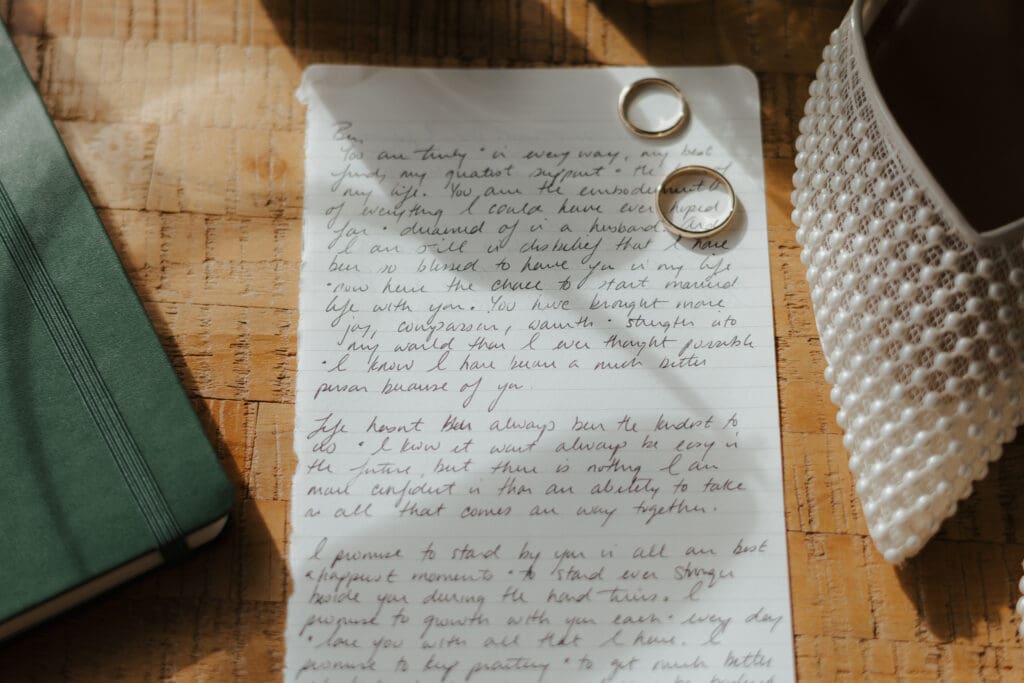 Ben,
You are truly + in every way, my best
friend, my greatest support + the of
my life. You are the embodiment
of everything I could have ever hoped
for + dreamed of in a husband. And
I am still in disbelief that I have
been so blessed to have you in my life
+ now have the chance to start married
life with you. You have brought more
joy, compassion, warmth + strength into
my world than I ever thought possible
+ I know I have become a much better
person because of you.
Life hasn't always been the kindest to
us + I know it won't always be easy in
the future, but there is nothing I am
more confident in than our ability to take
on all that comes our way together.
I promise to stand by you in all our best
+ happiest moments + to stand even stronger
beside you during the hard times. I
promise to growth with you each + every day
+ love you with all that I have. I
promise to keep practicing + to get much better